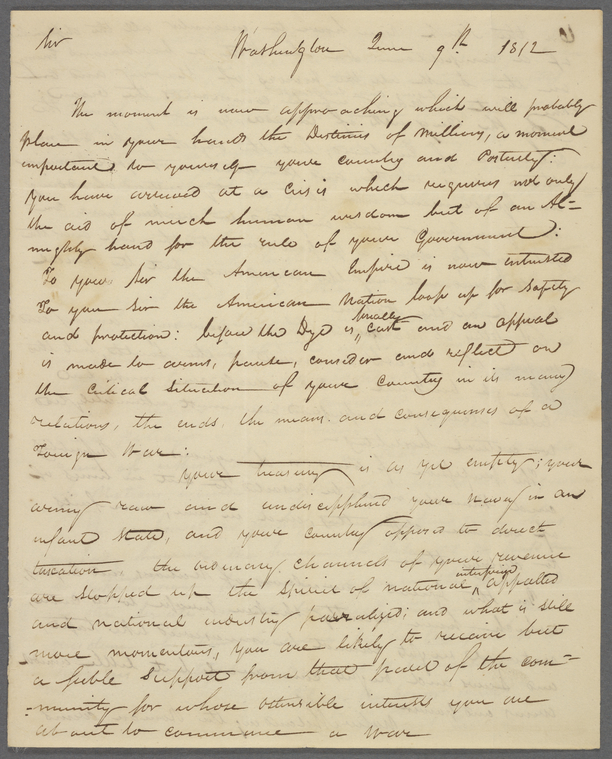 Sir Washington June 9th 1812
The moment is now approaching which will probably
place in your hands the Destinies of Millions, a moment
important to yourself your country and Posterity:
you have arrived at a Crisis which requires not only
the aid of much human wisdom but of an Al=
mighty hand for the rule of your Government:
To you Sir the American Empire is now intrusted
To you Sir the American Nation loop up for safety
and protection: before the Dye is finally cast and an appeal
is made to arms, pause, consider and reflect on
the Critical Situation of your Country in its many
relations, the ends, the means and consequences of a
Foreign War:
your treasury is as yet empty; your
army raw and undisciplined your Navy in an
infant State, and your country opposed to direct
taxation the ordinary channels of your revenue
are stopped up the Spirit of national interprise appalled
and national industry paralized; and what is still
more momentous, you are likely to receive but
a feble Support from that part of the com=
=munity for whose ostensible interests you are
about to commence a War